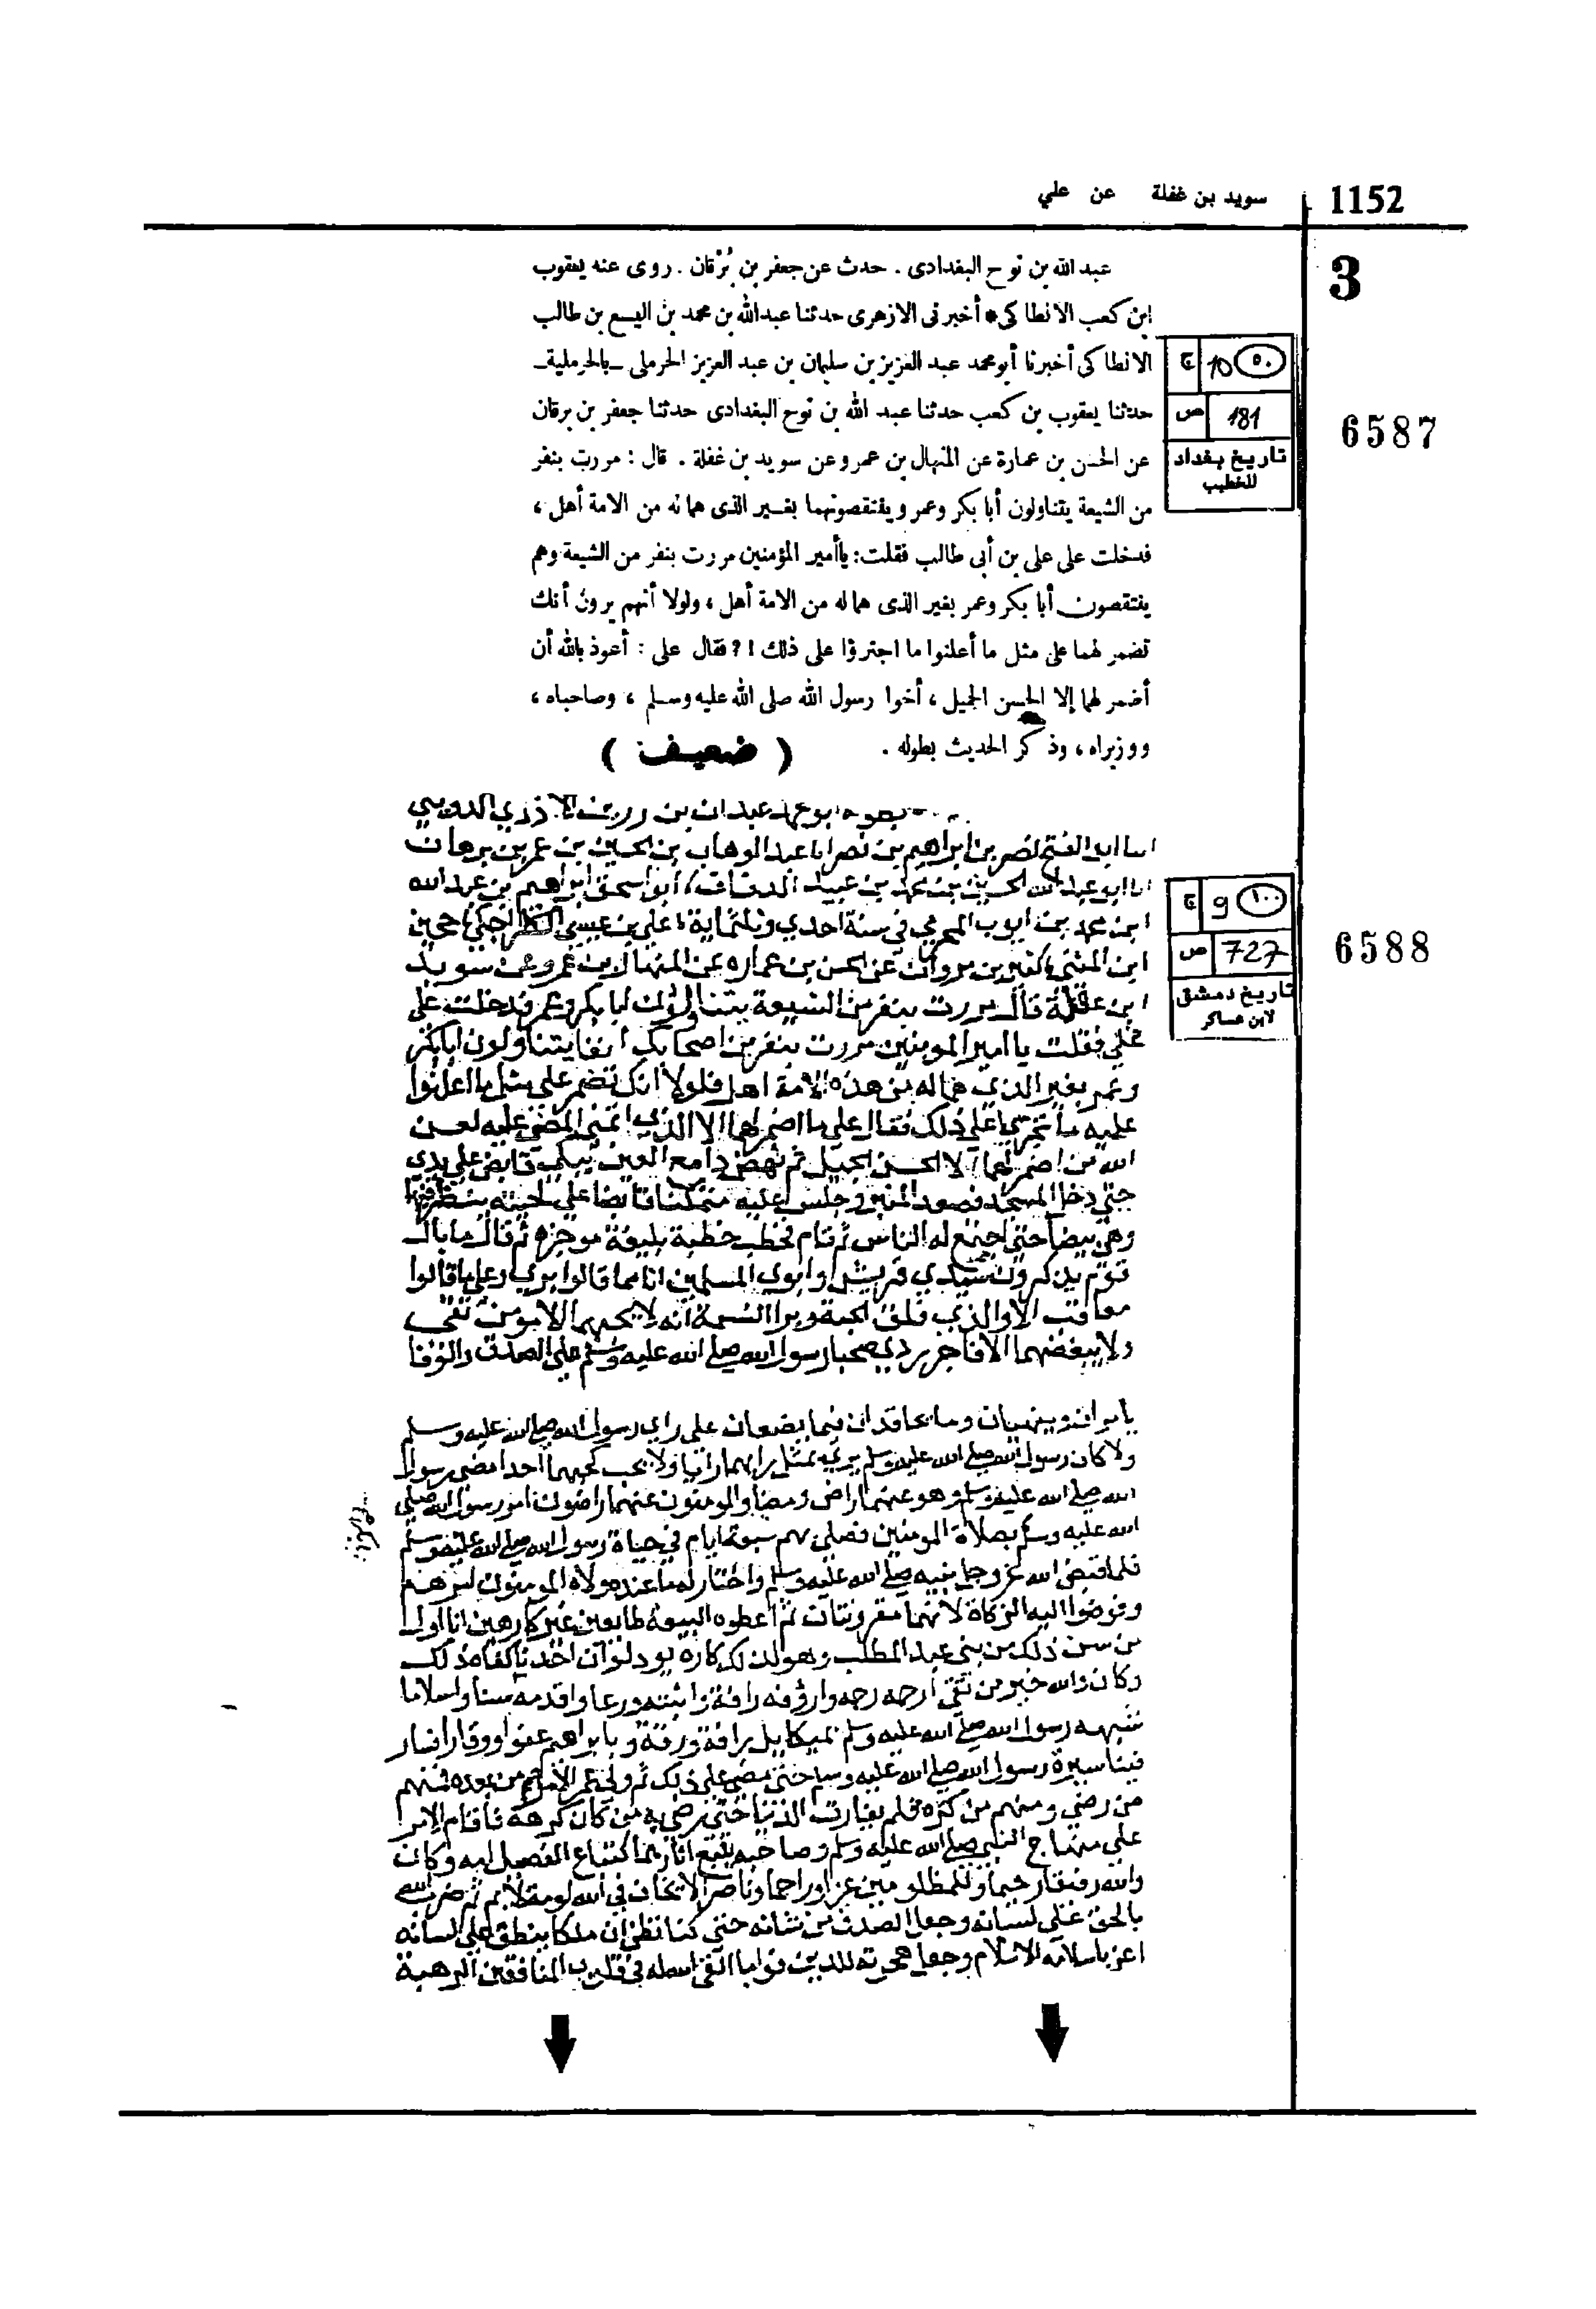 1152
سويد بن غفلة عن علي
3
عبد الله بن نوح البغدادى . حدث عن جعفر بن بُرْقان . روى عنه يعقوب
ابن كعب الانطاكى * أخبرنى الازهرى حدثنا عبدالله بن محمد بن اليسع بن طالب
الانطاكى أخبرنا أبو محمد عبد العزيز بن سليمان بن عبد العزيز الحرملى ـ بالحرملية ـ
حدثنا يعقوب بن كعب حدثنا عبد الله بن نوح البغدادى حدثنا جعفر بن برقان
عن الحسن بن عمارة عن المنهال بن عمرو عن سويد بن غفلة . قال : مررت بنفر
من الشيعة يتناولون أبا بكر وعمر وينتقصونهما بغير الذى هما له من الامة أهل ،
فدخلت على على بن أبى طالب فقلت : يا أمير المؤمنين مررت بنفر من الشيعة وهم
ينتقصون أبا بكر وعمر بغير الذى هما له من الامة أهل ، ولولا أنهم يرون أنك
تضمر لهما على مثل ما أعلنوا ما اجترؤا على ذلك ! ? فقال على : أعوذ بالله أن
أضمر لهما إلا الحسن الجميل ، أخوا رسول الله صلى الله عليه وسلم ، وصاحباه ،
ووزيراه ، وذكر الحديث بطوله . ( ضعيف )
ج 10 ٥٠
ص 181
تاريخ بغداد
للخطيب
6587
ابو محمد عبدان بن زرين الاذري الدويني
انا ابو الفتح نصر بن ابراهيم بن نصر انا عبد الوهاب بن الحسين بن عمر بن برهان
انا ابو عبد الله الحسين بن محمد بن عبيد الدقاق نا ابو اسحق ابراهيم بن عبد الله
ابن محمد بن ايوب المخرمي في سنة احدي وثلثماية نا علي بن عيسي الكراجكي نا حجين
ابن المثني نا كثير بن مروان عن الحسن بن عماره عن المنهال بن عمرو عن سويد
ابن غفلة قال مررت بنفر من الشيعة يتناولون ابا بكر وعمر فدخلت علي
علي فقلت يا امير المومنين مررت بنفر من اصحابك انفا يتناولون ابا بكر
وعمر بغير الذي هما له من هذه الامة اهل فلولا انك تضمر علي مثل ما اعلنوا
عليه ما تجرءوا علي ذلك فقال علي ما اضمر لهما الا الذي اتمني المضي عليه لعن
الله من اضمر لهما الا الحسن الجميل ثم نهض دامع العين يبكي قابض علي يدي
حتي دخل المسجد فصعد المنبر وجلس عليه متمكنا قابضا علي لحيته ينظر فيها
وهي بيضا حتي اجتمع له الناس ثم قام فخطب خطبة بليغة موجزه ثم قال ما بال
قوم يذكرون سيدي قريش وابوي المسلمين انا مما قالوا بري وعلي ما قالوا
معاقب الا والذي فلق الحبة وبرا النسمة انه لا يحبهما الا مومن تقي
ولا يبغضهما الا فاجر ردي صحبا رسول الله صلي الله عليه وسلم علي الصدق والوفا
يامران وينهيان وما يجاوزان فيما يصنعان علي راي رسول الله صلي الله عليه وسلم
ولا كان رسول الله صلي الله عليه وسلم يري بمثل رايهما رايا ولا يحب كحبهما احدا مضي رسول
الله صلي الله عليه وسلم وهو عنهما راض ومضيا والمومنون عنهما راضون امر رسول الله صلي
الله عليه وسلم بصلاة المومنين فصلي بهم سبعة ايام في حياة رسول الله صلي الله عليه وسلم
فلما قبض الله عز وجل نبيه صلي الله عليه وسلم واختار له ما عنده ولاه المومنون امرهم
وفوضوا اليه الزكاة لانهما مقرونتان ثم اعطوه البيعة طايعين غير كارهين انا اول
من سن ذلك من بني عبد المطلب وهو لذلك كاره يود لو ان احدنا كفاه ذلك
وكان والله خير من بقي ارحمه رحمه واروفه رافة واثبته ورعا واقدمه سنا واسلاما
شبهه رسول الله صلي الله عليه وسلم بميكاييل رافة ورقة وبابراهيم عفوا ووقارا فسار
فينا سيرة رسول الله صلي الله عليه وسلم حتي مضي علي ذلك ثم ولي عمر الامر من بعده فمنهم
من رضي ومنهم من كره فلم يفارق الدنيا حتي رضي به من كان كرهه فاقام الامر
علي منهاج النبي صلي الله عليه وسلم وصاحبه يتبع اثارهما كتباع الفصيل امه وكان
والله رفيقا رحيما وللمظلومين عزا وراحما وناصرا لا يخاف في الله لومة لايم ثم ضرب الله
بالحق علي لسانه وجعل الصدق من شانه حتي كنا نظن ان ملكا ينطق علي لسانه
اعز باسلامه الاسلام وجعل هجرته للدين قواما القي الله له في قلوب المنافقين الرهبة
ج 9 ١٠٠
ص 727
تاريخ دمشق
لابن عساكر
6588